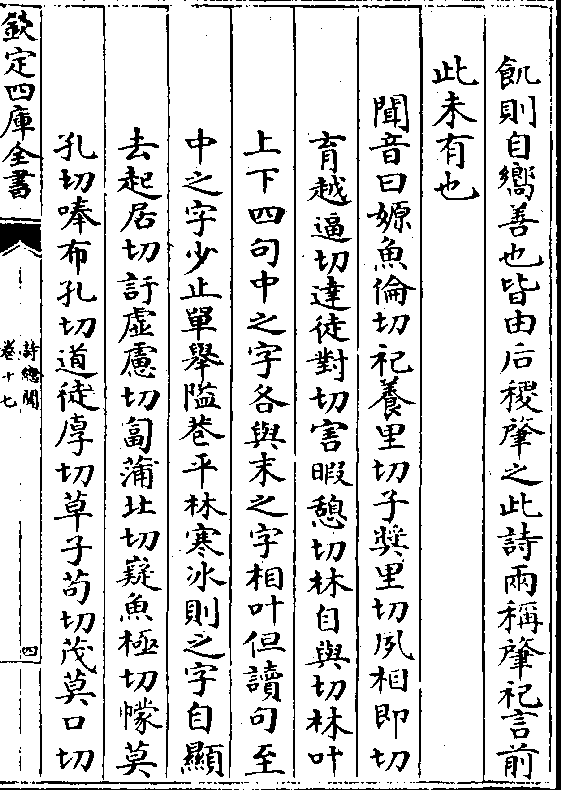 飢則自嚮善也皆由后稷肇之此詩兩稱肇祀言前
此未有也
聞音曰嫄魚倫切祀養里切子奬里切夙相即切
育越逼切達徒對切害暇憩切林自與切林叶
上下四句中之字各與末之字相叶但讀句至
中之字少止單舉隘巷平林寒冰則之字自顯
去起居切訏虛慮切匐蒲北切嶷魚極切幪莫
孔切唪布孔切道徒厚切草子苟切茂莫口切
欽定四庫全書
詩總聞
卷十七
四